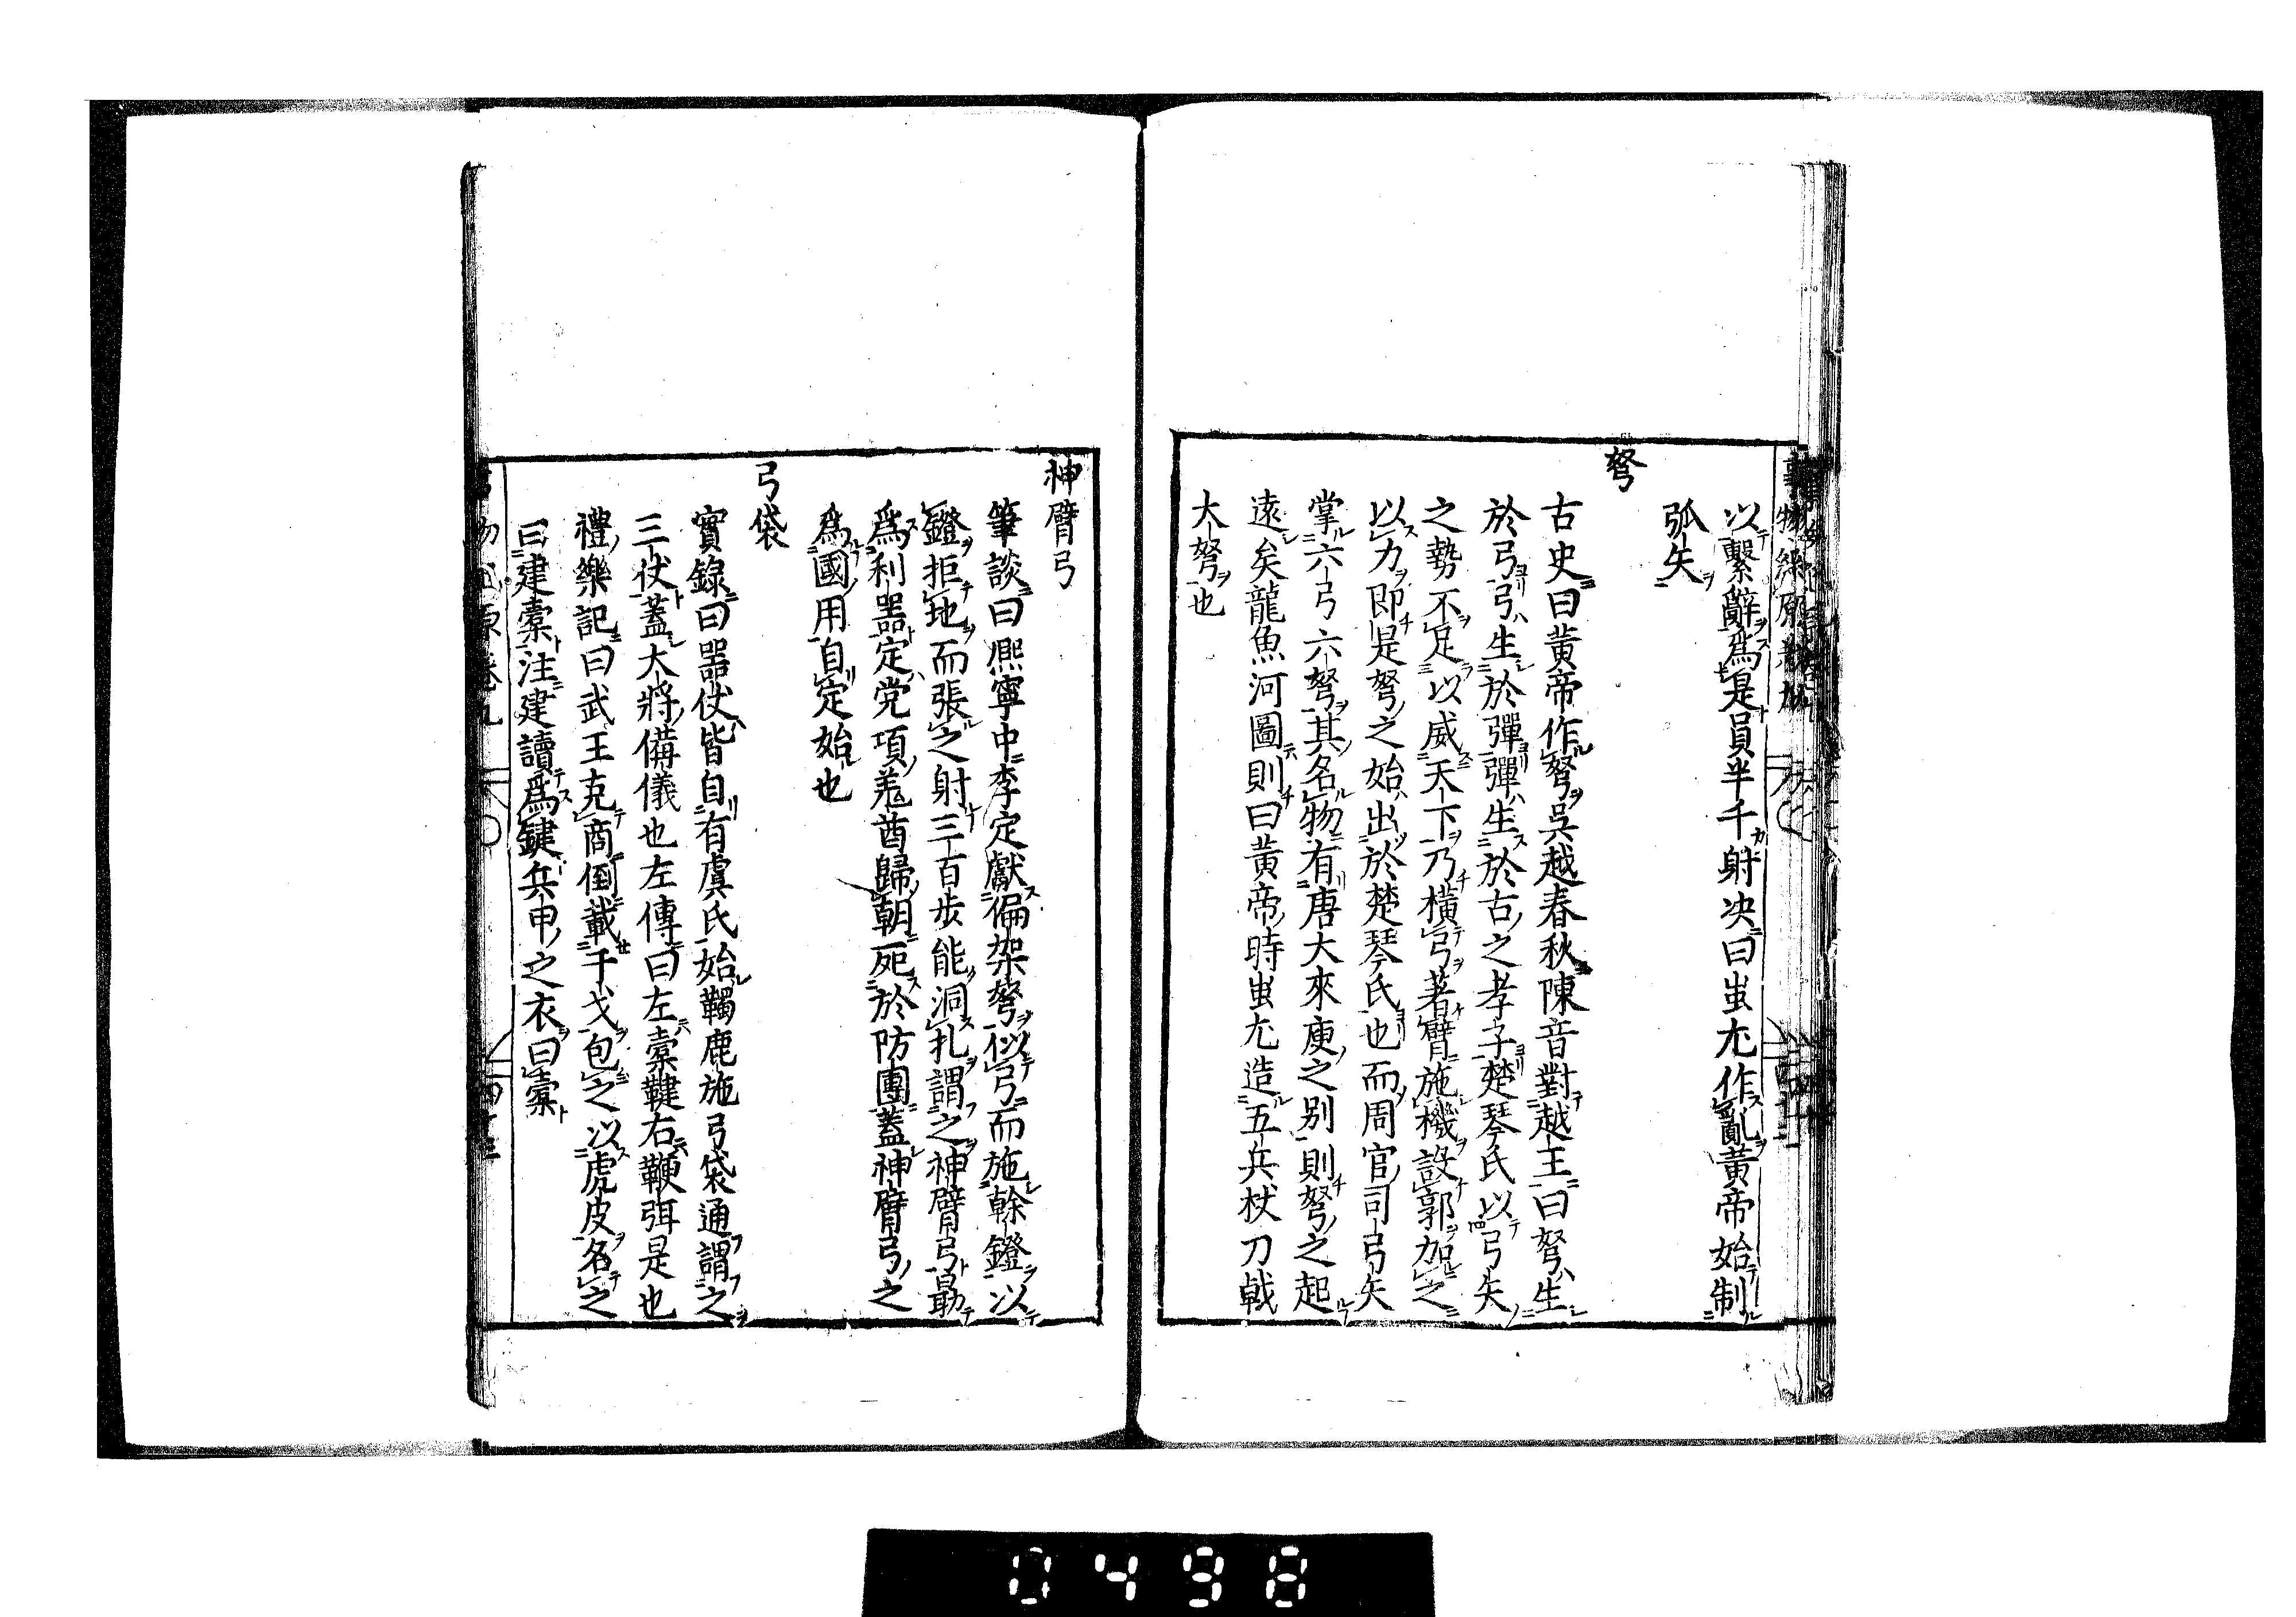 以繫辭爲是員半千射決曰蚩尤作亂黃帝始制
弧矢
弩
古史曰黃帝作弩吳越春秋陳音對越王曰弩生
於弓弓生於彈彈生於古之孝子楚琴氏以弓矢
之勢不足以威天下乃橫弓著臂施機設郭加之
以力即是弩之始出於楚琴氏也而周官司弓矢
掌六弓六弩其名物有唐大來庾之別則弩之起
遠矣龍魚河圖則曰黃帝時蚩尤造五兵杖刀戟
大弩也
神臂弓
筆談曰熈寧中李定獻偏架弩似弓而施榦鐙以
鐙拒地而張之射三百步能洞札謂之神臂弓最
爲利噐定党項羗酋歸朝死於防團蓋神臂弓之
爲國用自定始也
弓袋
實錄曰噐仗皆自有虞氏始鞨鹿施弓袋通謂之
三仗蓋大將備儀也左傳曰左櫜鞬右鞭弭是也
禮樂記曰武王克商倒載干戈包之以虎皮名之
曰建櫜注建讀爲鍵兵甲之衣曰櫜
0498